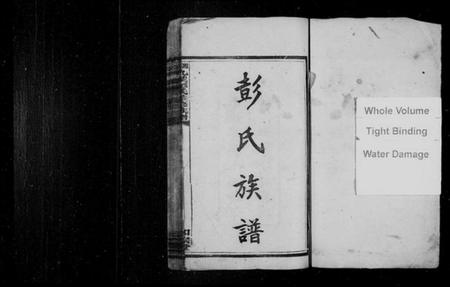 彭氏族譜
Whole Volume
Tight Binding
Water Damage